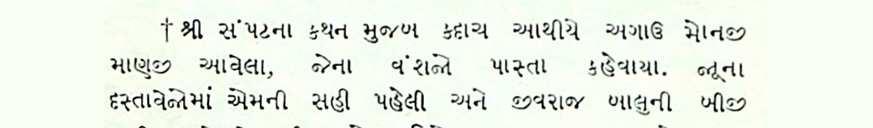 † શ્રી સંપટના કથન મુજબ કદાચ આથીયે અગાઉ મોનજી
માણજી આવેલા, જેના વંશજો પાસ્તા કહેવાયા. જૂના
દસ્તાવેજોમાં એમની સહી પહેલી અને જીવરાજ બાલુની બીજી